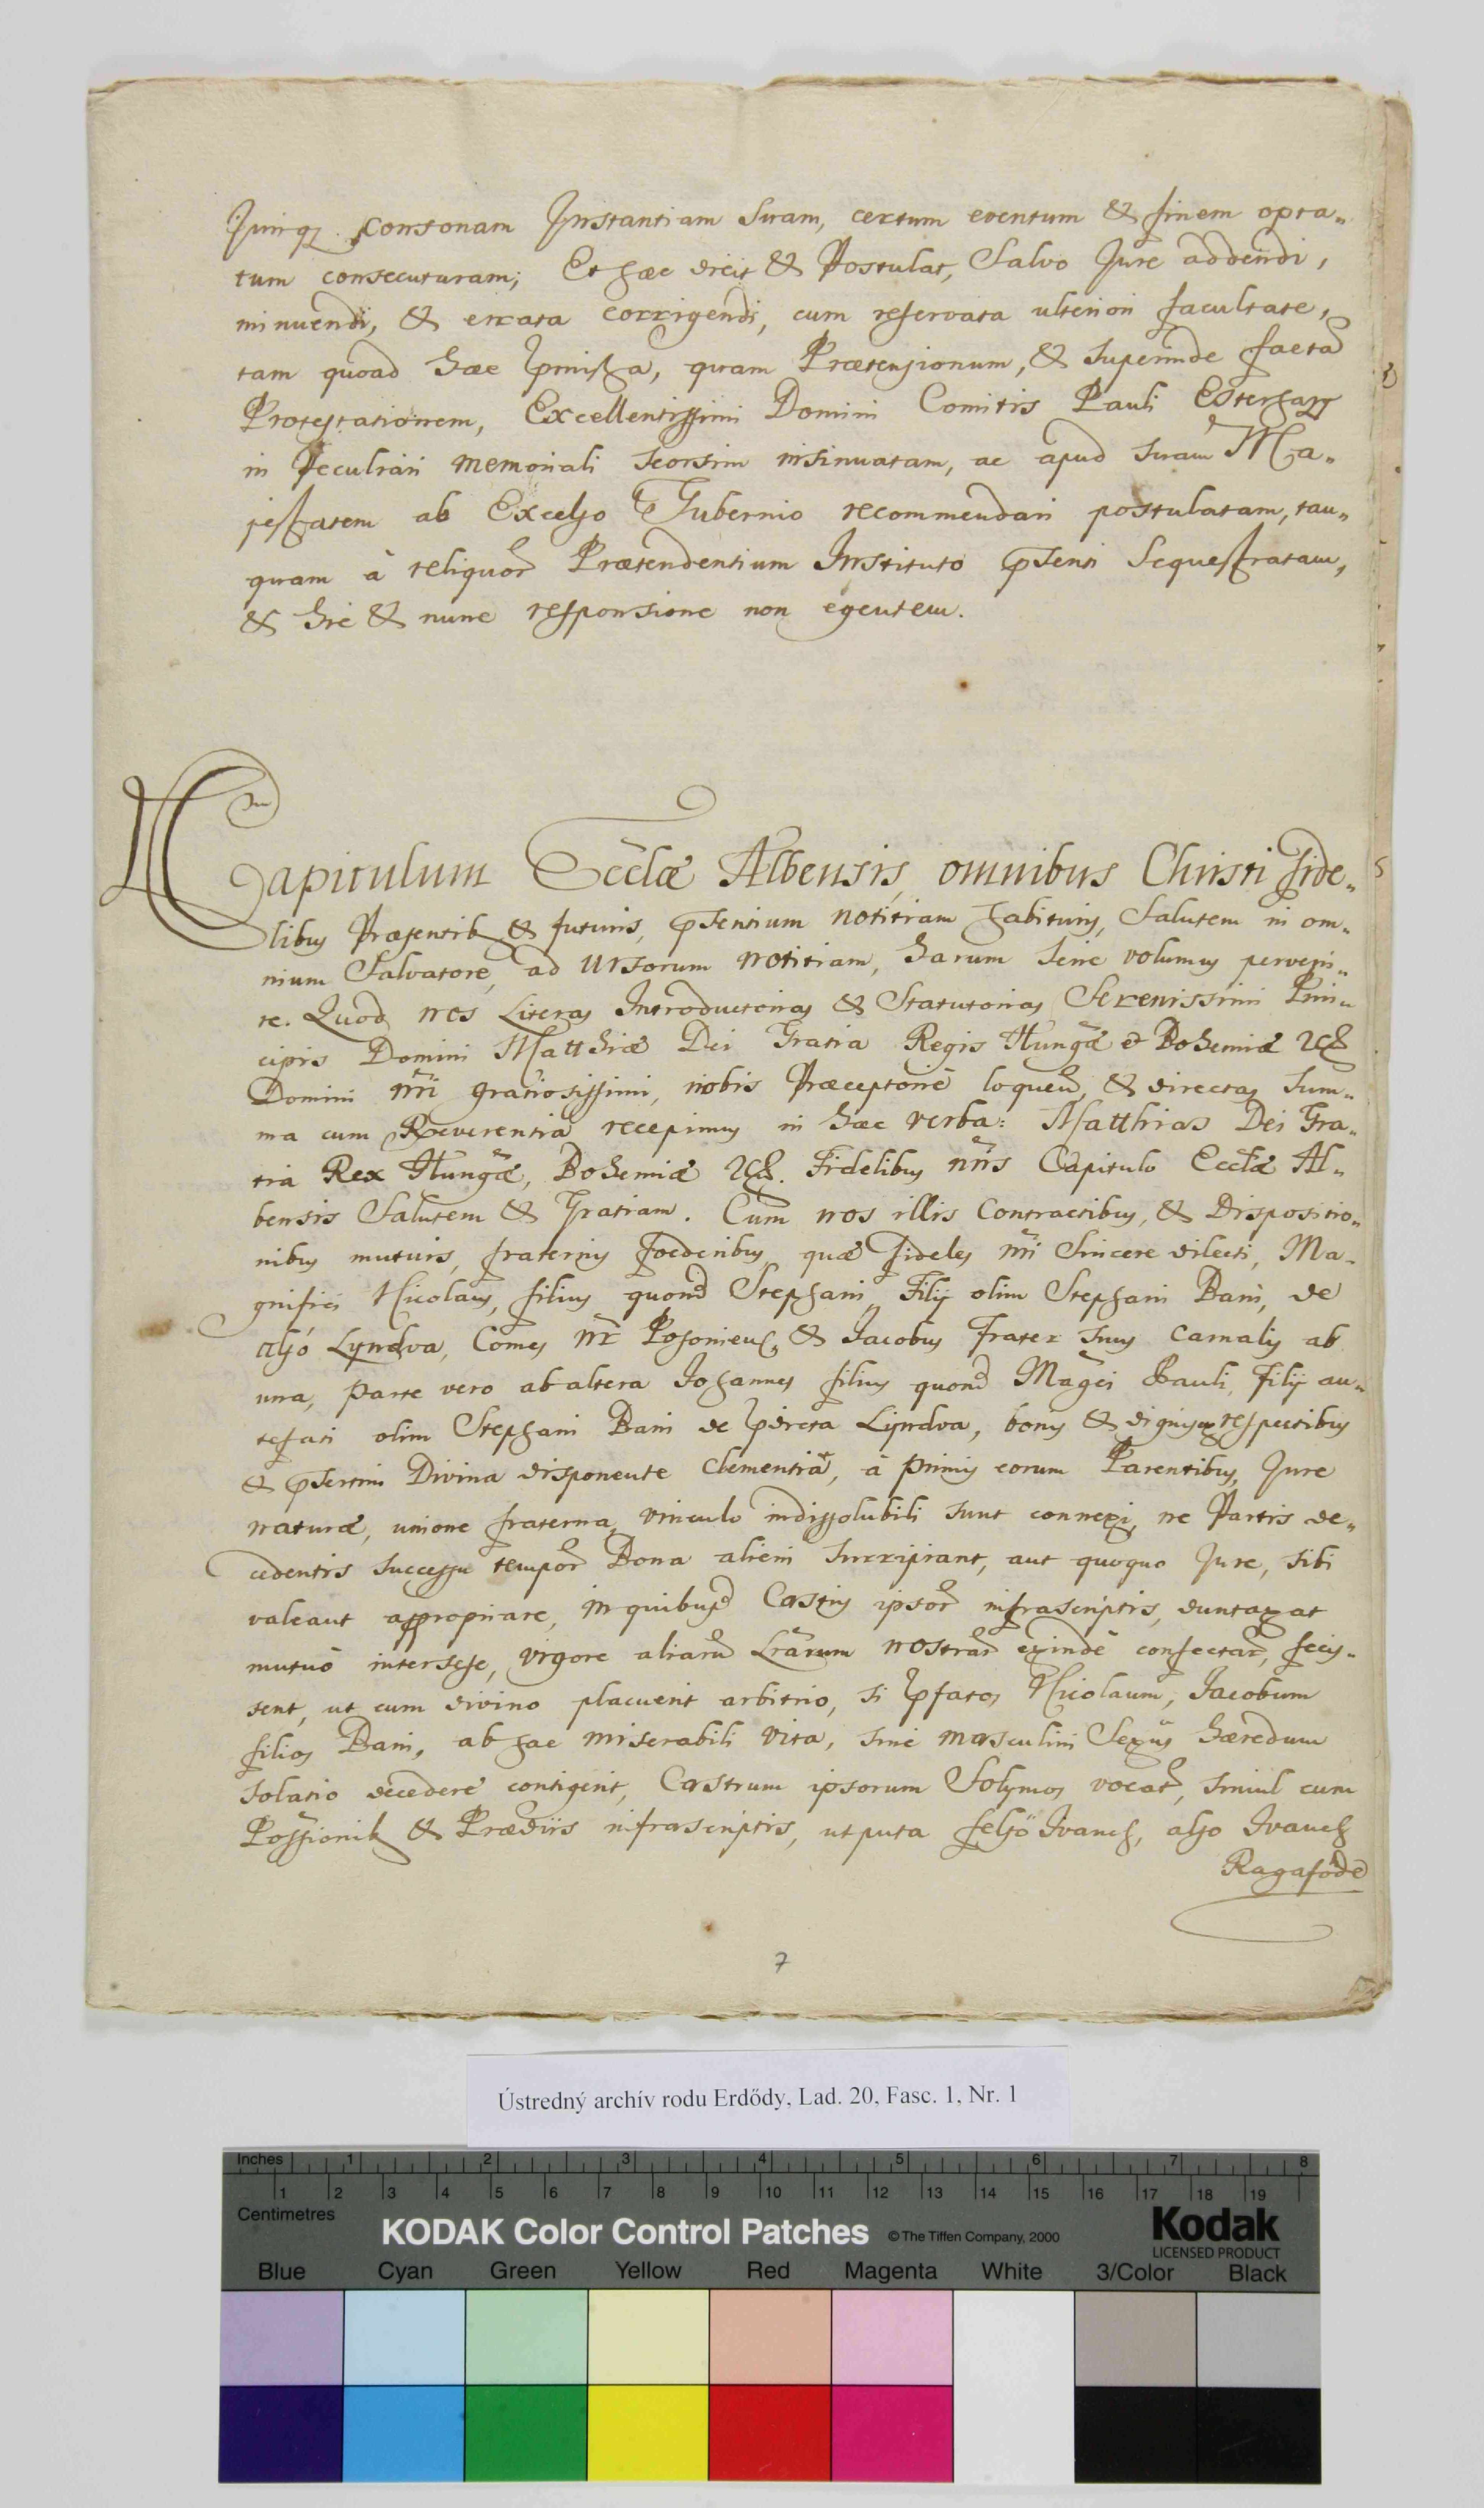 Juriq3 consonam Instantiam Suam, certum eventum & finem opta„
tum consecuturam; Et hæc dicit & Postulat, Salvo Jure addendi,
minuendi, & errata corrigendi, cum reservata ulteriori facultate,
tam quoad hæc pmissa, quam Prætensionum, & superinde factã
Protestationem, Excellentissimi Domini Comitis Pauli Esterhazy
in Peculiari memoriali seorsim insinuatam, ac apud suam Ma„
jestatem ab Excelso Gubernio recommendari postulatam, tan„
quam à reliquor Prætendentium Instituto psenti Sequestratam,
& hic & nunc responsione non egentem.
Capitulum Ecclæ Albensis, omnibus Christi fide„
libus Præsentib & futuris, psentium notitiam habituris, Salutem in om„
nium Salvatore, ad Ursorum notitiam, harum serie volumus perveni„
re. Quod nos Literas Introductorias & Statutorias Serenissimi Prin„
cipis Domini Matthiæ Dei Gratia Regis Hungæ & Bohemiæ &c
Domini nri gratiosissimi, nobis Præceptoriè loquen, & directas sum„
ma cum Reverentia recepimus in hæc verba: Matthias Dei Gra„
tia Rex Hungæ, Bohemiæ &c. Fidelibus nris Capitulo Ecclæ Al„
bensis Salutem & Gratiam. Cum nos illis Contractibus, & Dispositio„
nibus mutuis, fraternis foederibus, quæ fideles nri Sincere dilecti, Ma„
gnifici Nicolaus, filius quond Stephani, Filij olim Stephani Bani, de
aljó Lyndva, Comes nr Posoniens, & Jacobus frater suus carnalis ab
una, parte vero ab altera Johannes filius quond Magci Pauli, Filij an„
tefati olim Stephani Bani de pdicta Lijndva, bonis & dignis respectibus
& psertim Divina disponente clementia, à primis eorum Parentibus, Jure
naturæ, unione fraterna, vinculo indissolubili sunt connexi, ne Partis de„
cedentis successu tempor Bona alieni surripiant, aut quoquo Jure, sibi
valeant appropriare, in quibusd Castris ipsor infrascriptis, duntaxat
mutuò intersese, vigore aliarũ Lrarum nostrar exindè confectar, fecis„
sent, ut cum divino placuerit arbitrio, si pfatos Nicolaum, Jacobum
filios Bani, ab hac miserabili vita, sine masculini Sexus hæredum
solatio decedere contigerit, Castrum ipsorum Solymos vocat, simul cum
Possionib & Prædiis infrascriptis, utputa feljö Ivanch, aljo Ivanch
Ragaföde
7
Ústredný archív rodu Erdődy, Lad. 20, Fasc. 1, Nr. 1
Inches 1 2 3 4 5 6 7 8
1 2 3 4 5 6 7 8 9 10 11 12 13 14 15 16 17 18 19
Centimetres
KODAK Color Control Patches © The Tiffen Company, 2000
Kodak
LICENSED PRODUCT
Blue Cyan Green Yellow Red Magenta White 3/Color Black